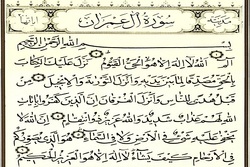 سورة آل عمران
بسم الله الرحمن الرحيم
الم الله لا إله إلا هو الحي القيوم نزل عليك الكتاب
بالحق مصدقا لما بين يديه وأنزل التوراة والإنجيل من
قبل هدى للناس وأنزل الفرقان إن الذين كفروا بآيات
الله لهم عذاب شديد والله عزيز ذو انتقام إن الله لا
يخفى عليه شيء في الأرض ولا في السماء هو الذي يصوركم
في الأرحام كيف يشاء لا إله إلا هو العزيز الحكيم